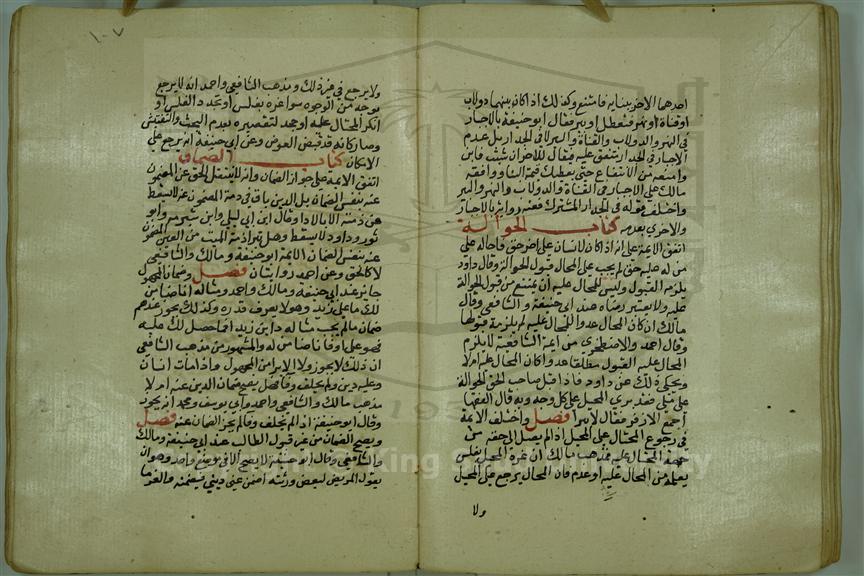 احدهما الاخر ببنايه فامتنع وكذلك اذا كان بينهما دولاب
او قناة او نهر فتعطل او بير فقال ابو حنيفة بالاجبار
في النهر والدولاب والقناة والبير لا في الجدار بل عدم
الاجبار في الجدار متفق عليه يقال للآخر ان شئت فابن
وامنعه من الانتفاع حتى يعطيك قيمة البنا ووافقه
مالك علي الاجبار في القناة والدولاب والنهر والبير
واختلف قوله في الجدار المشترك فعنه رواية بالاجبار
والاخري بعدمه كتاب الحوالة
اتفق الايمة على انه اذا كان لانسان على اخر حق فاحاله على
من له عليه حق لم يجب على المحال قبول الحوالة وقال داود
يلزمه القبول وليس للمحال عليه ان يمتنع من قبول الحوالة
عليه ولا يعتبر رضاه عند ابي حنيفة والشافعي وقال
مالك ان كان المحال عدوا للمحال عليه لم يلزمه قبولها
وقال احمد والاصطخري من ايمة الشافعية لا يلزم
المحال عليه القبول مطلقا عدوا كان المحال عليه ام لا
ويحكي ذلك عن داود فاذا قبل صاحب الحق الحوالة
على ملي فقد بري المحيل على كل وجه وبه قال الفقها
اجمع الا زفر فقال لا يبرا فصل واختلف الايمة
في رجوع المحتال على المحيل اذا لم يصل الى حقه من
جهة المحتال عليه فمذهب مالك ان غره المحيل بفلس
يعلمه من المحال عليه او عدم فان المحال يرجع على المحيل
ولا
١٠٧
ولا يرجع في غير ذلك ومذهب الشافعي واحمد انه لا يرجع
بوجه من الوجوه سوا غره بفلس او تجدد الفلس او
انكر المحتال عليه او جحد لتقصيره بعدم البحث والتفتيش
وصار كانه قد قبض العوض وعن ابي حنيفة انه يرجع على
الانكار كتاب الضمان
اتفق الايمة على جواز الضمان وانه لا ينتقل الحق عن المضمون
عنه بنفس الضمان بل الدين باق في ذمة المضمون عنه لا يسقط
عن ذمته الا بالاداء وقال ابن ابي ليلى وابن شبرمه وابو
ثور وداود لا يسقط وهل تبرا ذمة الميت من الدين المضمون
عنه بنفس الضمان الايمة ابو حنيفة ومالك والشافعي
لا كالحي وعن احمد روايتان فصل وضمان المجهول
جايز عند ابي حنيفة ومالك واحمد ومثاله انا ضامن
لك ما على زيد وهو لا يعرف قدره وكذلك يجوز عندهم
ضمان ما لم يجب مثاله داين زيد فما حصل لك عليه
فهو على او فانا ضامن له والمشهور من مذهب الشافعي
ان ذلك لا يجوز ولا الابرا من المجهول واذا مات انسان
وعليه دين ولم يخلف وفا فهل يصح ضمان الدين عنه ام لا
مذهب مالك والشافعي واحمد وابي يوسف ومحمد انه يجوز
وقال ابو حنيفة اذا لم يخلف وفا لم يجز الضمان عنه فصل
ويصح الضمان من غير قبول الطالب عند ابي حنيفة ومالك
والشافعي وقال ابو حنيفة لا يصح الا في موضع واحد وهو ان
يقول المريض لبعض ورثته اضمن عني ديني فيضمنه والغرما